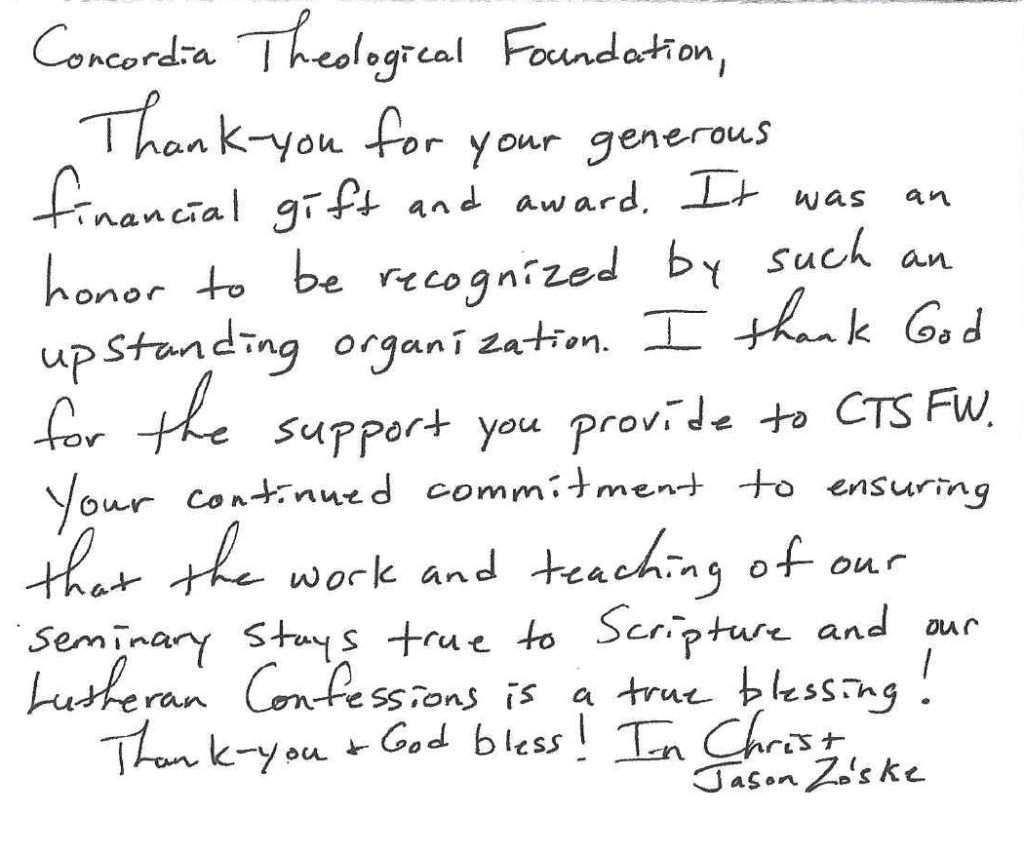 Concordia Theological Foundation,
Thank-you for your generous
financial gift and award. It was an
honor to be recognized by such an
upstanding organization. I thank God
for the support you provide to CTSFW.
Your continued commitment to ensuring
that the work and teaching of our
seminary stays true to Scripture and our
Lutheran Confessions is a true blessing!
Thank-you + God bless! In Christ
Jason